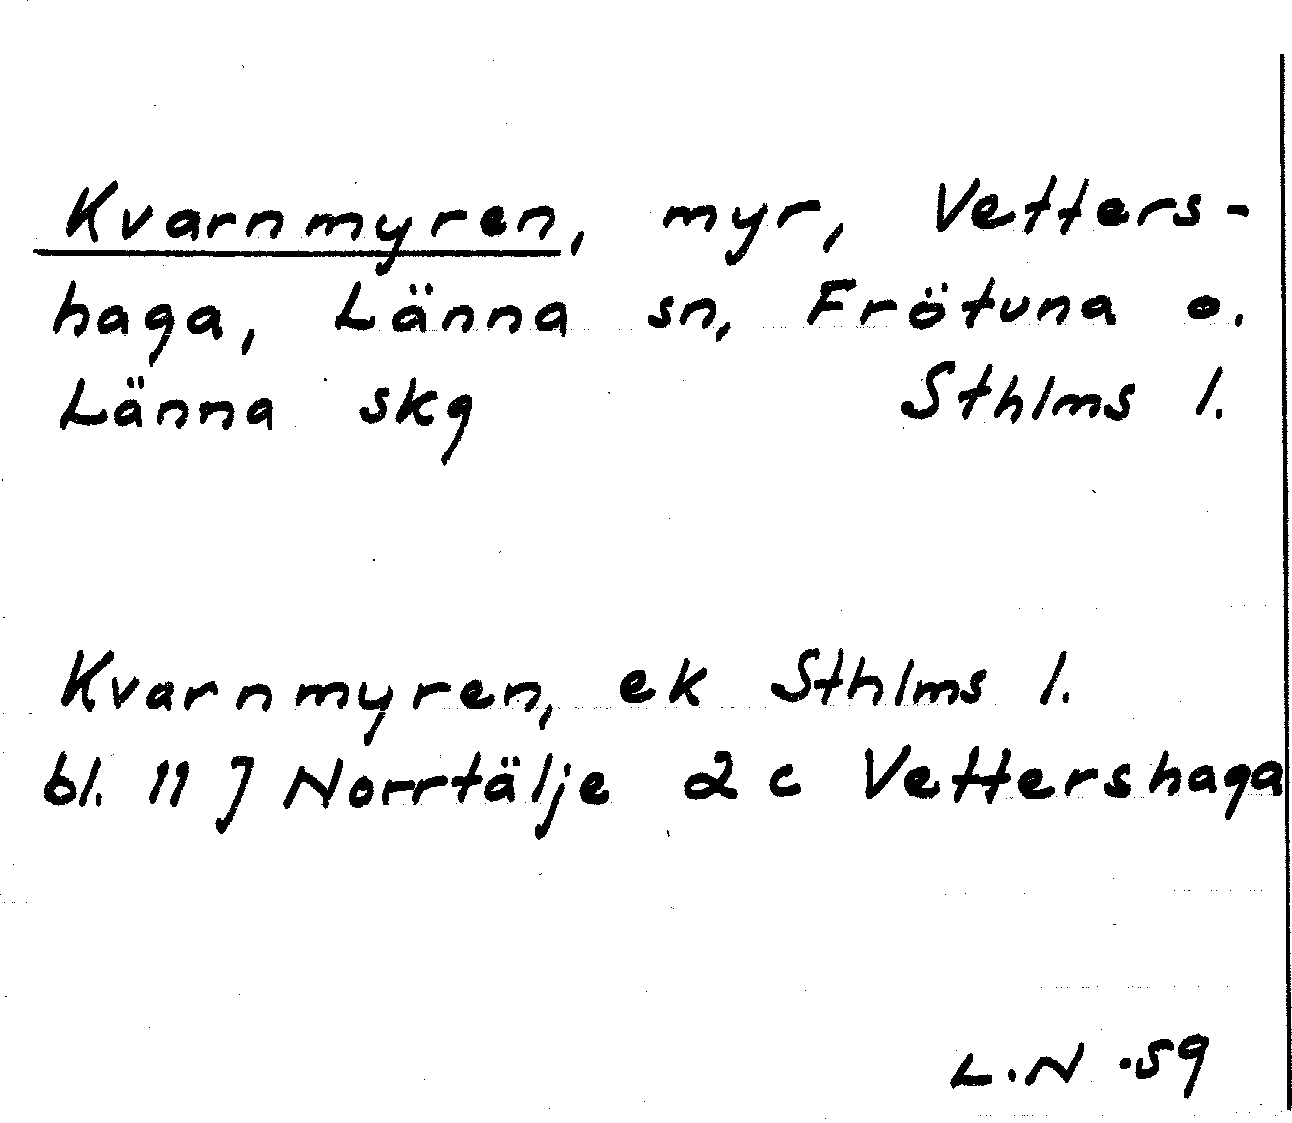 Kvarnmyren, myr, Vetters-
haga, Länna sn, Frötuna o.
Länna skg Sthlms l.
Kvarnmyren, ek Sthlms l.
bl. 11 J Norrtälje 2 c Vettershaga
L.N .59